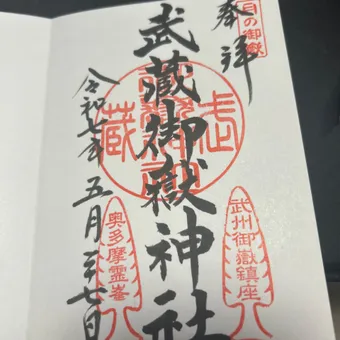 奉拝
武蔵御嶽神社
令和七年五月二十七日
武蔵
武州御嶽鎮座
奥多摩霊峯